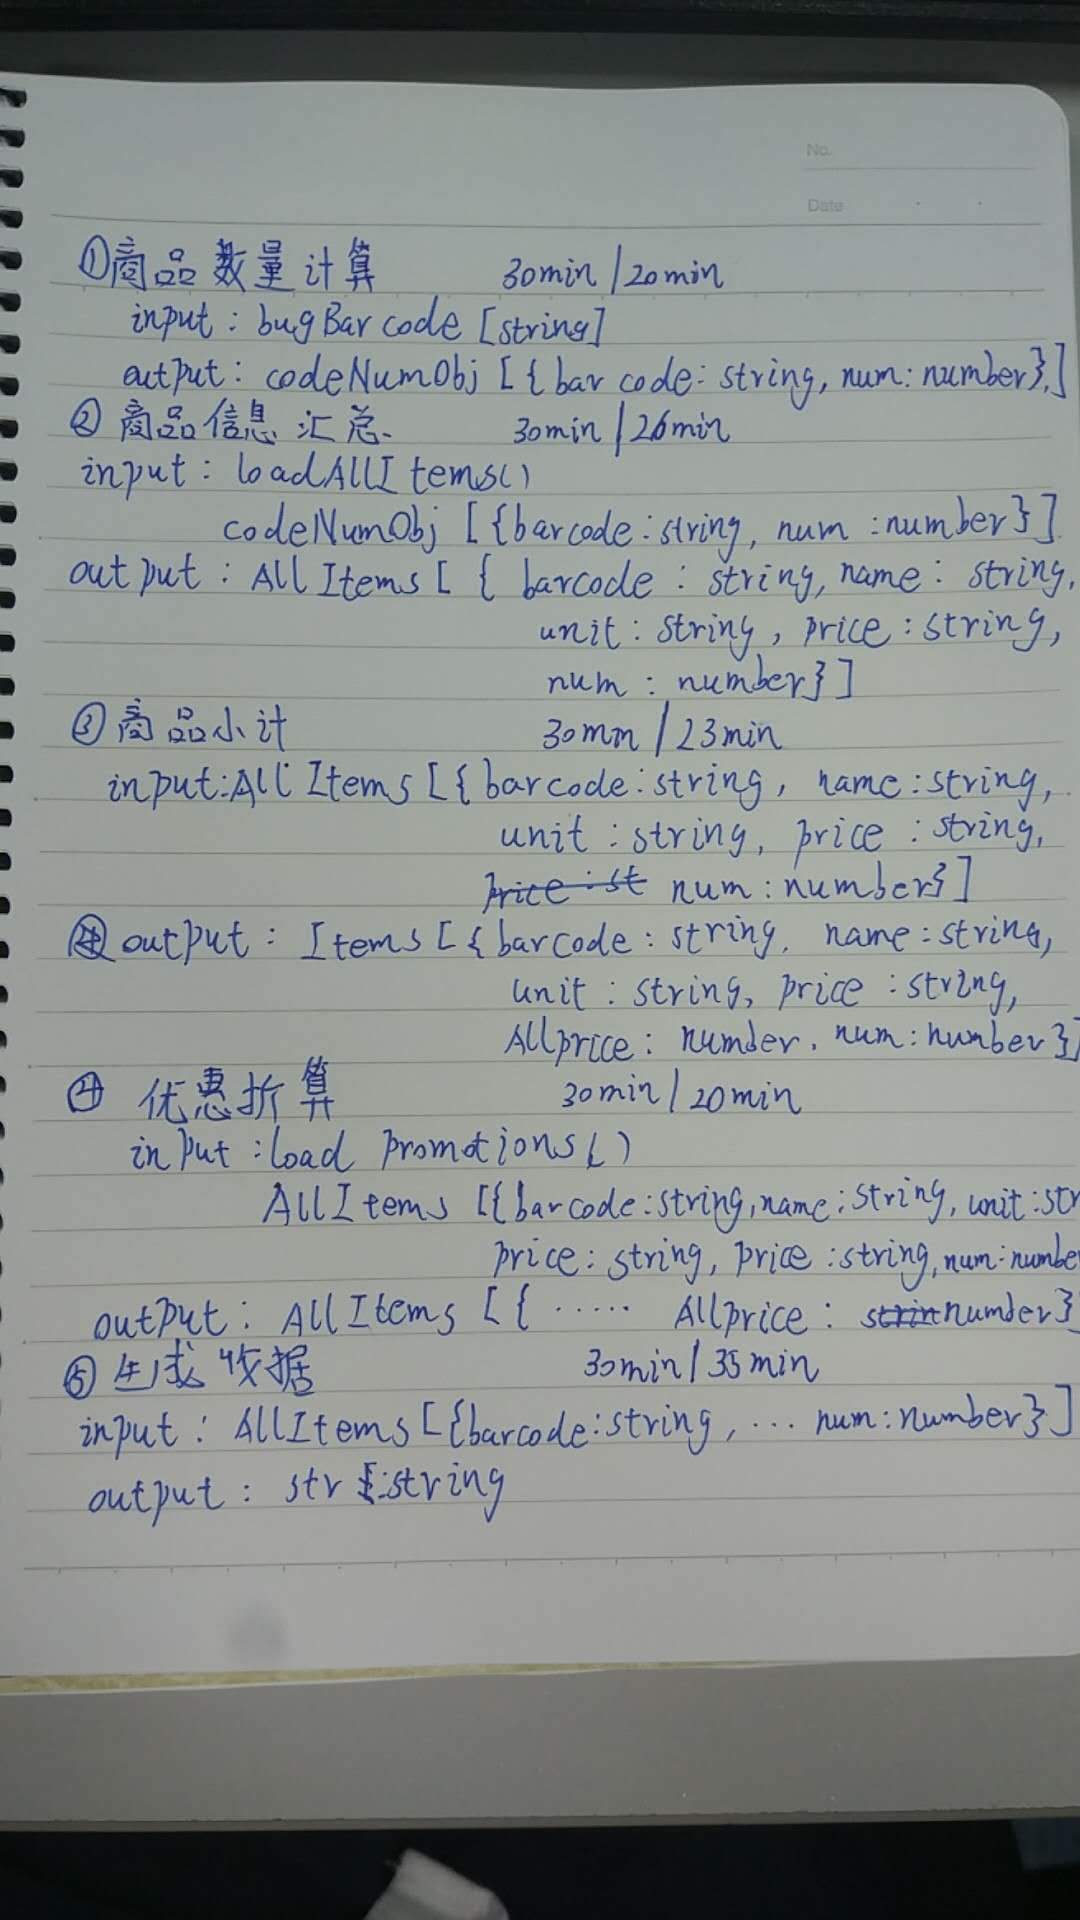 No.
Date
①商品数量计算 30min/20min
input: bugBarcode [string]
output: codeNumObj [{barcode: string, num: number},]
② 商品信息汇总 30min/26min
input: loadAllItems()
codeNumObj [{barcode: string, num: number}]
output: AllItems [{ barcode: string, name: string,
unit: string, price: string,
num: number}]
③ 商品小计 30mn/23min
input: AllItems [{barcode: string, name: string,
unit: string, price: string,
price: st num: number}]
output: Items [{barcode: string, name: string,
unit: string, price: string,
Allprice: number, num: number}]
④ 优惠折算 30min/20min
input: load promotions()
AllItems [{barcode: string, name: string, unit: str
price: string, price: string, num: numbe
output: AllItems [{ ...... Allprice: strin number}
⑤ 生成收据 30min/35min
input: AllItems [{barcode: string, ... num: number}]
output: str: string